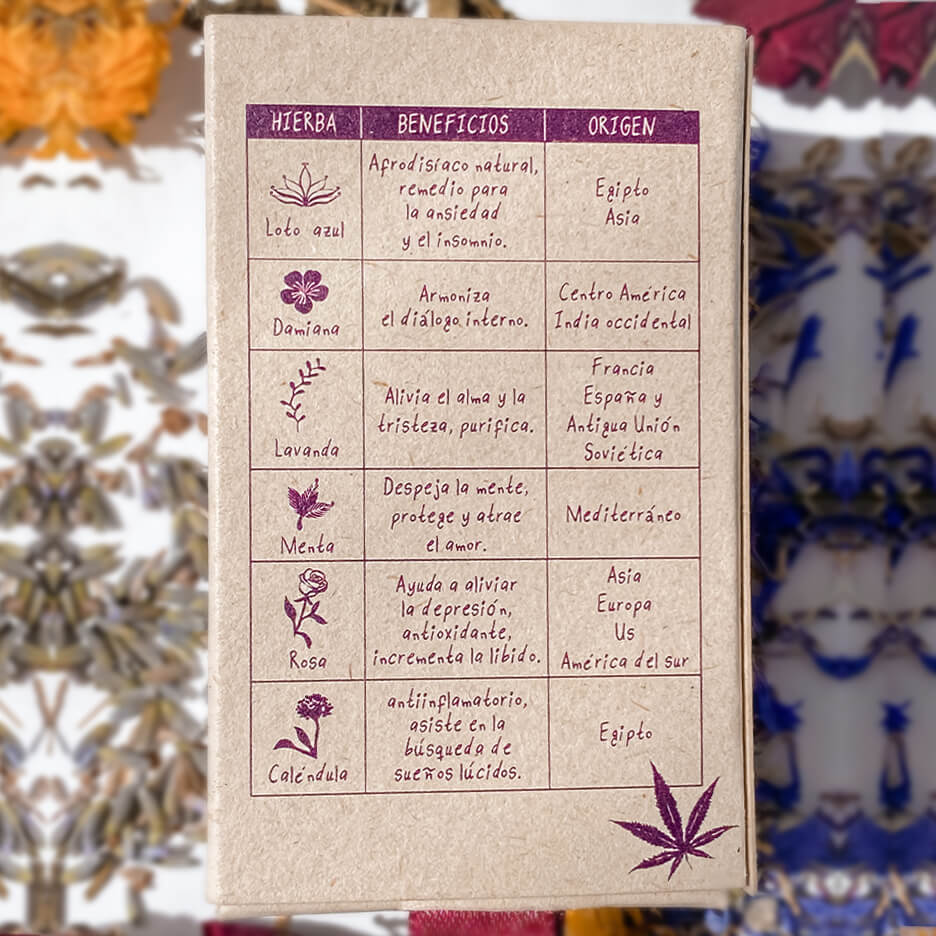 HIERBA BENEFICIOS ORIGEN
Loto azul
Afrodisíaco natural,
remedio para
la ansiedad
y el insomnio.
Egipto
Asia
Damiana
Armoniza
el diálogo interno.
Centro América
India occidental
Lavanda
Alivia el alma y la
tristeza, purifica.
Francia
España y
Antigua Unión
Soviética
Menta
Despeja la mente,
protege y atrae
el amor.
Mediterráneo
Rosa
Ayuda a aliviar
la depresión,
antioxidante,
incrementa la libido.
Asia
Europa
Us
América del sur
Caléndula
antiinflamatorio,
asiste en la
búsqueda de
sueños lúcidos.
Egipto